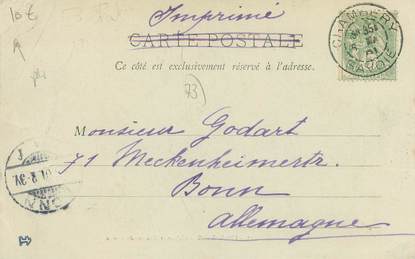 10 €
Imprimé
CARTE POSTALE
Ce côté est exclusivement réservé à l'adresse.
CHAMBERY
SAVOIE
73
Monsieur Godart
71 Meckenheimerstr.
Bonn
Allemagne